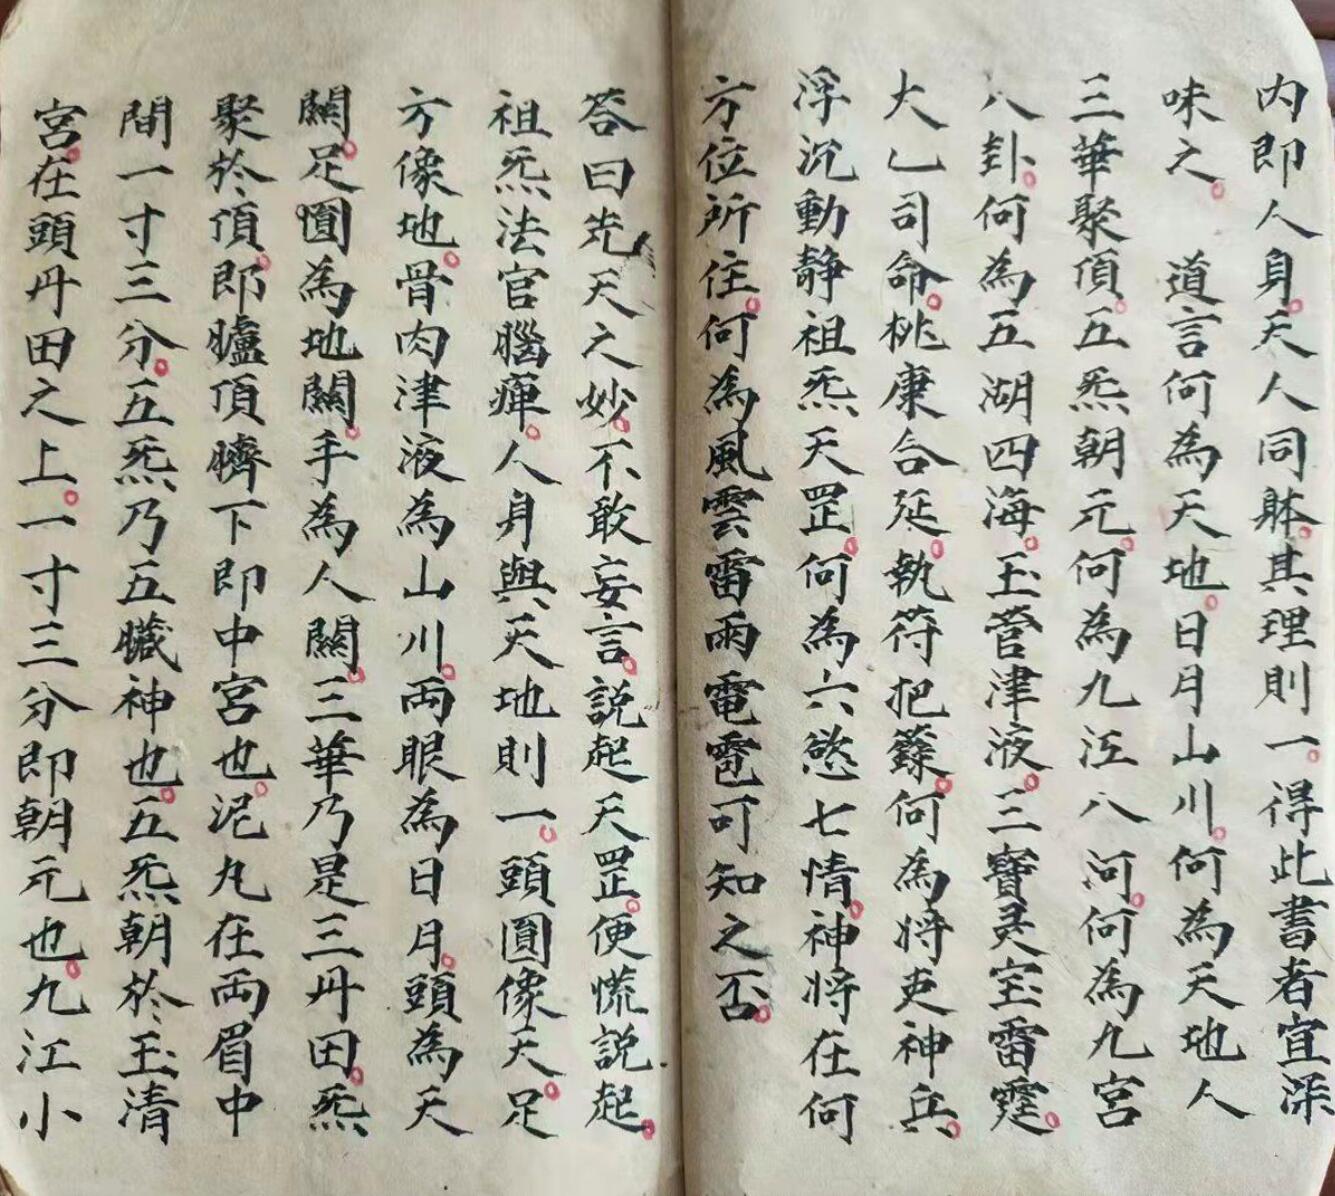 内即人身。天人同躰。其理則一。得此書者宜深
味之。 道言何為天地。日月山川。何為天地人
三華聚頂。五炁朝元。何為九江八河。何為九宮
八卦。何為五湖四海。玉管津液。三寶灵宝雷霆。
大乙司命。桃康合延。執符把籙。何為将吏神兵。
浮沉動静祖炁天罡。何為六慾七情。神将在何
方位所住。何為風雲雷雨電雹可知之否。
答曰先天之妙。不敢妄言。説起天罡。便慌説起。
祖炁法官腦痺。人身與天地則一。頭圓像天。足
方像地。骨肉津液為山川。両眼為日月。頭為天
關。足圓為地關。手為人關。三華乃是三丹田。炁
聚於頂。即臚頂臍下即中宮也。泥丸在両眉中
間一寸三分。五炁乃五臓神也。五炁朝於玉清
宮。在頭丹田之上。一寸三分即朝元也。九江小